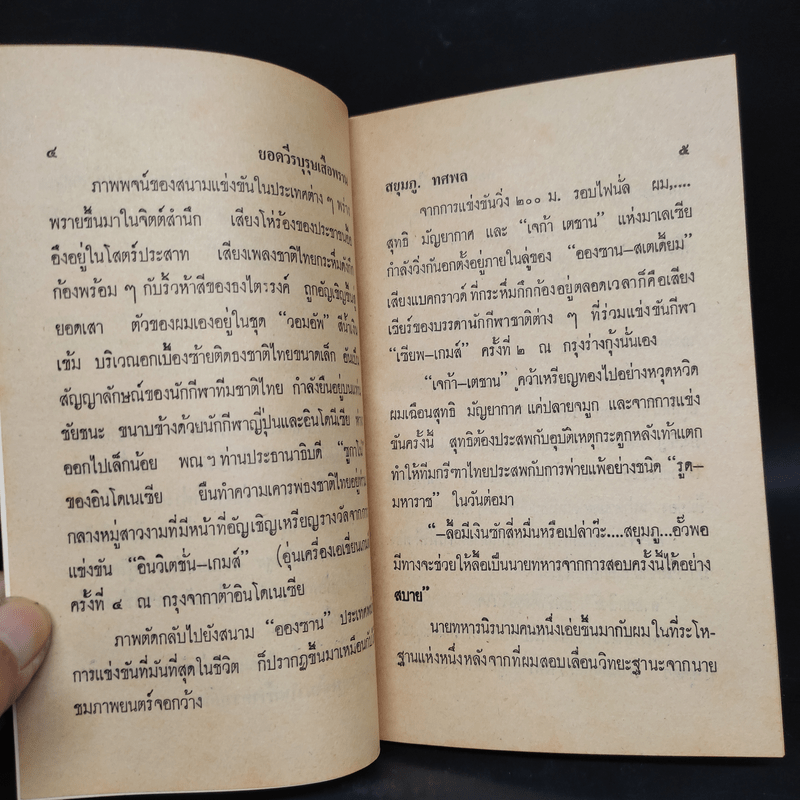 ๔
ยอดวีรบุรุษเสือพราน
ภาพพจน์ของสนามแข่งขันในประเทศต่าง ๆ
พรายขึ้นมาในจิตต์สำนึก เสียงโห่ร้องของประชาชน
อึงอยู่ในโสตร์ประสาท เสียงเพลงชาติไทยกระหึ่ม
ก้องพร้อม ๆ กับริ้วห้าสีของธงไตรรงค์ ถูกอัญเชิญขึ้นสู่
ยอดเสา ตัวของผมเองอยู่ในชุด “วอมอัพ” สีน้ำเงิน
เข้ม บริเวณอกเบื้องซ้ายติดธงชาติไทยขนาดเล็ก อันเป็น
สัญญาลักษณ์ของนักกีฬาทีมชาติไทย กำลังยืนอยู่บนแท่น
ชัยชนะ ขนาบข้างด้วยนักกีฬาญี่ปุ่นและอินโดนีเซีย
ออกไปเล็กน้อย พณฯท่านประธานาธิบดี “ซูกาโน”
ของอินโดเนเซีย ยืนทำความเคารพธงชาติไทยอยู่
กลางหมู่สาวงามที่มีหน้าที่อัญเชิญเหรียญรางวัลจากการ
แข่งขัน “อินวิเตชั่น–เกมส์” (อุ่นเครื่องเอเชี่ยนเกมส์
ครั้งที่ ๔ ณ กรุงจากาต้าอินโดเนเซีย
ภาพตัดกลับไปยังสนาม “อองซาน” ประเทศพม่า
การแข่งขันที่มันที่สุดในชีวิต ก็ปรากฏขึ้นมาเหมือนกับ
ชมภาพยนตร์จอกว้าง
สยุมภู. ทศพล
๕
จากการแข่งขันวิ่ง ๒๐๐ ม. รอบไฟนั่ล ผม,....
สุทธิ มัญยากาศ และ “เจก้า เตชาน” แห่งมาเลเซีย
กำลังวิ่งกันอกตั้งอยู่ภายในลู่ของ “อองซาน–สเตเดี้ยม”
เสียงแบคกราวด์ ที่กระหึ่มกึกก้องอยู่ตลอดเวลาก็คือเสียง
เชียร์ของบรรดานักกีฬาชาติต่าง ๆ ที่ร่วมแข่งขันกีฬา
“เซียพ–เกมส์” ครั้งที่ ๒ ณ กรุงร่างกุ้งนั้นเอง
“เจก้า–เตชาน” คว้าเหรียญทองไปอย่างหวุดหวิด
ผมเฉือนสุทธิ มัญยากาศ แค่ปลายจมูก และจากการแข่ง
ขันครั้งนี้ สุทธิต้องประสพกับอุบัติเหตุกระดูกหลังเท้าแตก
ทำให้ทีมกรีฑาไทยประสพกับการพ่ายแพ้อย่างชนิด “รูด–
มหาราช” ในวันต่อมา
“–ลื้อมีเงินซักสี่หมื่นหรือเปล่าว๊ะ....สยุมภู...อั๊วพอ
มีทางจะช่วยให้ลื้อเป็นนายทหารจากการสอบครั้งนี้ได้อย่าง
สบาย”
นายทหารนิรนามคนหนึ่งเอ่ยขึ้นมากับผม ในที่ระโห-
ฐานแห่งหนึ่งหลังจากที่ผมสอบเลื่อนวิทยะฐานะจากนาย